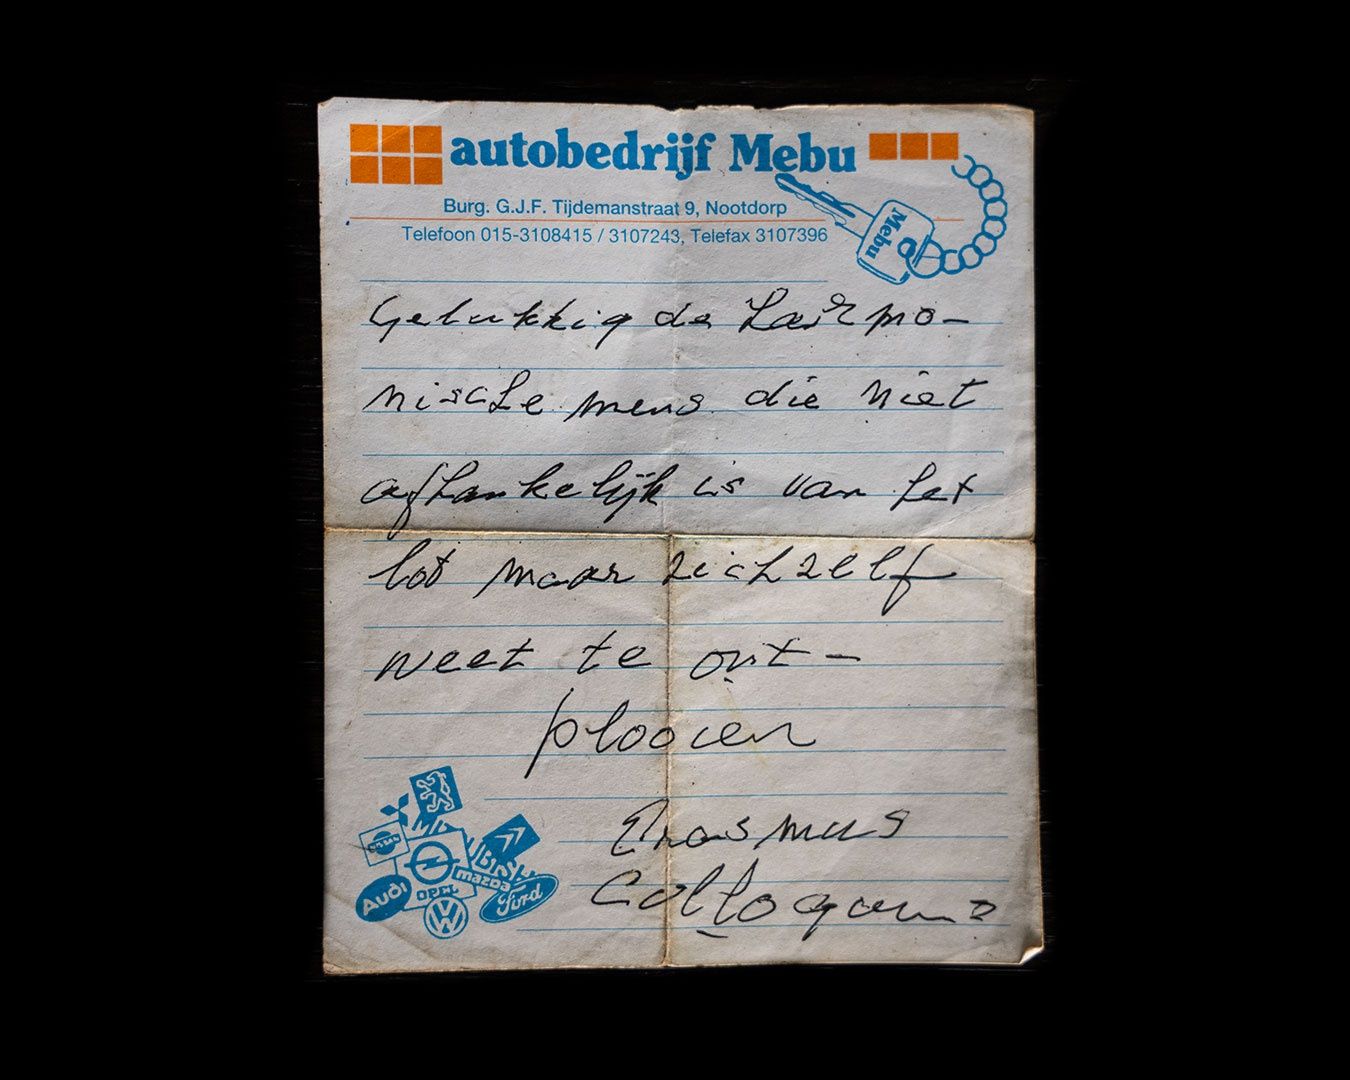 autobedrijf Mebu
Burg. G.J.F. Tijdemanstraat 9, Nootdorp
Telefoon 015-3108415 / 3107243, Telefax 3107396
Mebu
Gelukkig de harmo-
nische mens die niet
afhankelijk is van het
lot maar zichzelf
weet te ont-
plooien
Erasmus
NISSAN
OPEL
mazda
Audi
Ford